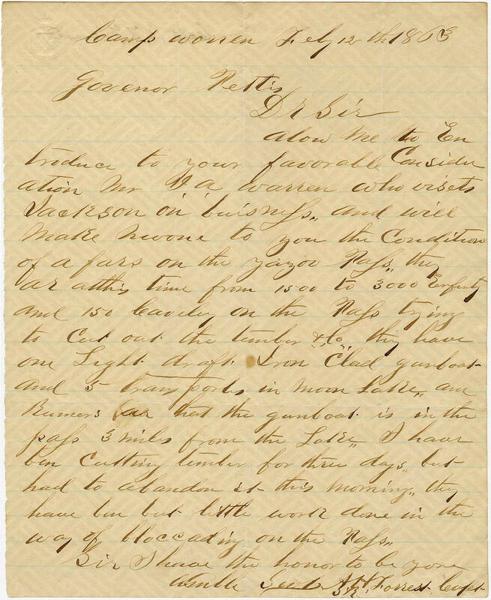 Camp worren Feby 12th 1863
Govenor Pettis
Dr Sir
alow me to En
troduce to your favorable Consider
ation Mr J A warren who visets
Jackson on buisness, and will
make knwone to you the Condition
of a fars on the yazoo Pass, they
ar at this time from 1500 to 3000 Enfentry
and 150 Cavelry on the Pass trying
to Cut out the timber &c, they have
one Light draft Iron Clad gunboat
and 5 transports in moon Lake, and
Rumers ar that the gunboat is in the
pass 3 miles from the Lake, I have
ben Cutting timber for three days, but
had to abandon it this morning, they
have bin but little work done in the
way of bloccading on the Pass,
Sir I have the honor to be your
umble A H Forrest Capt